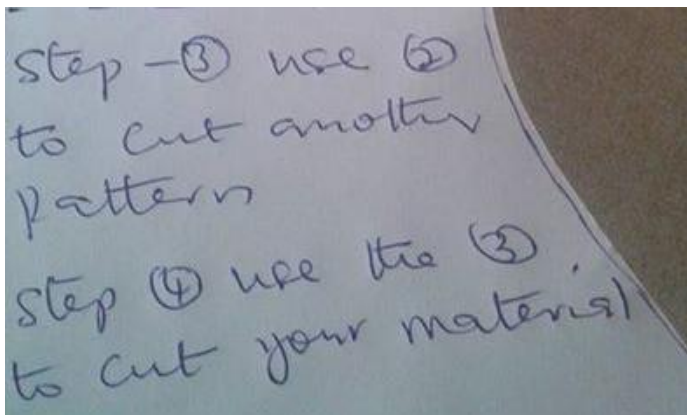 Step - ③ use ②
to cut another
pattern
Step ④ use the ③
to cut your material